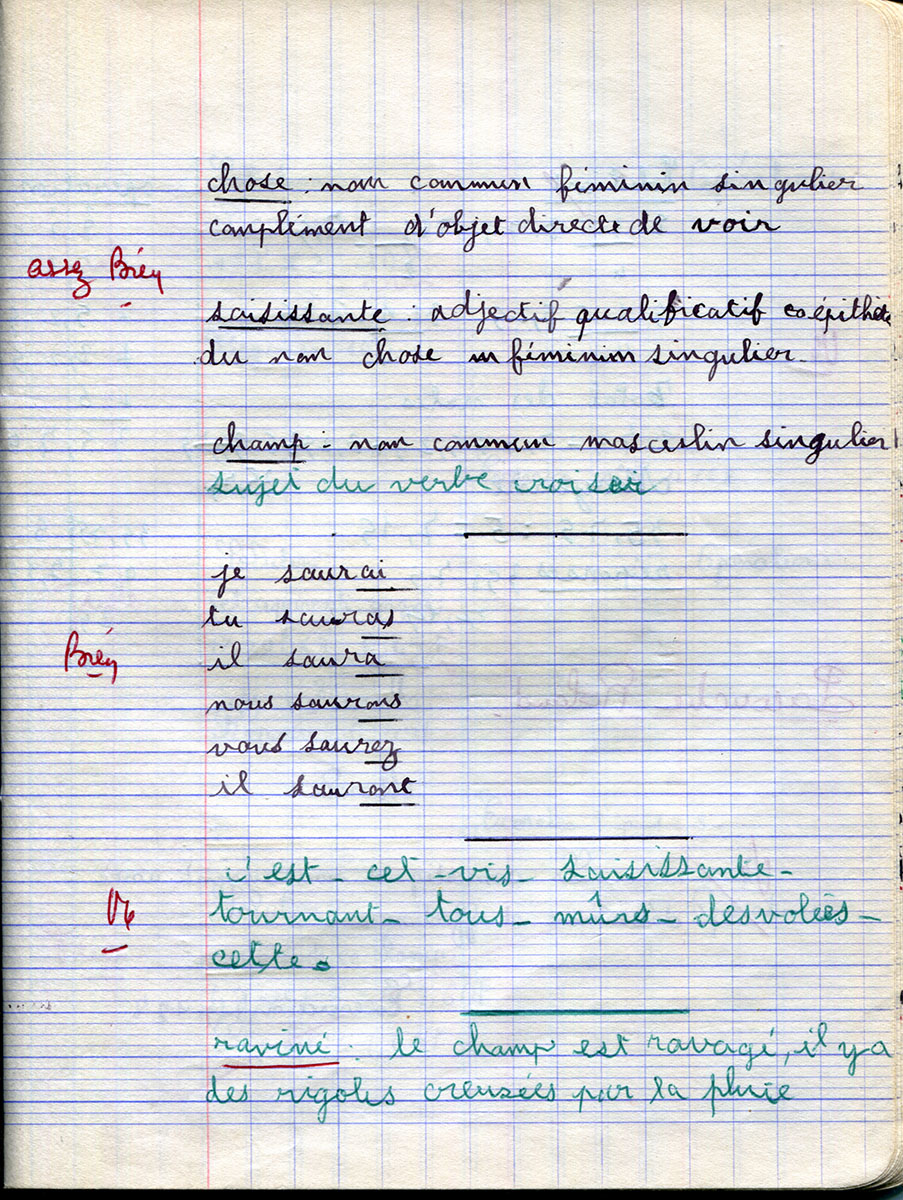 chose : nom commun féminin singulier
complément d'objet directe de voir
assez Bien
saisissante : adjectif qualificatif épithète
du nom chose féminin singulier.
champ : nom commun masculin singulier
sujet du verbe
je saurai
tu sauras
il saura
Bien
nous saurons
vous saurez
il sauront
c'est - cet - vis - saisissante -
Vu
tournant - tous - mûrs - des volées -
cette.
raviné : le champ est ravagé, il y a
des rigoles creuzées par la pluie